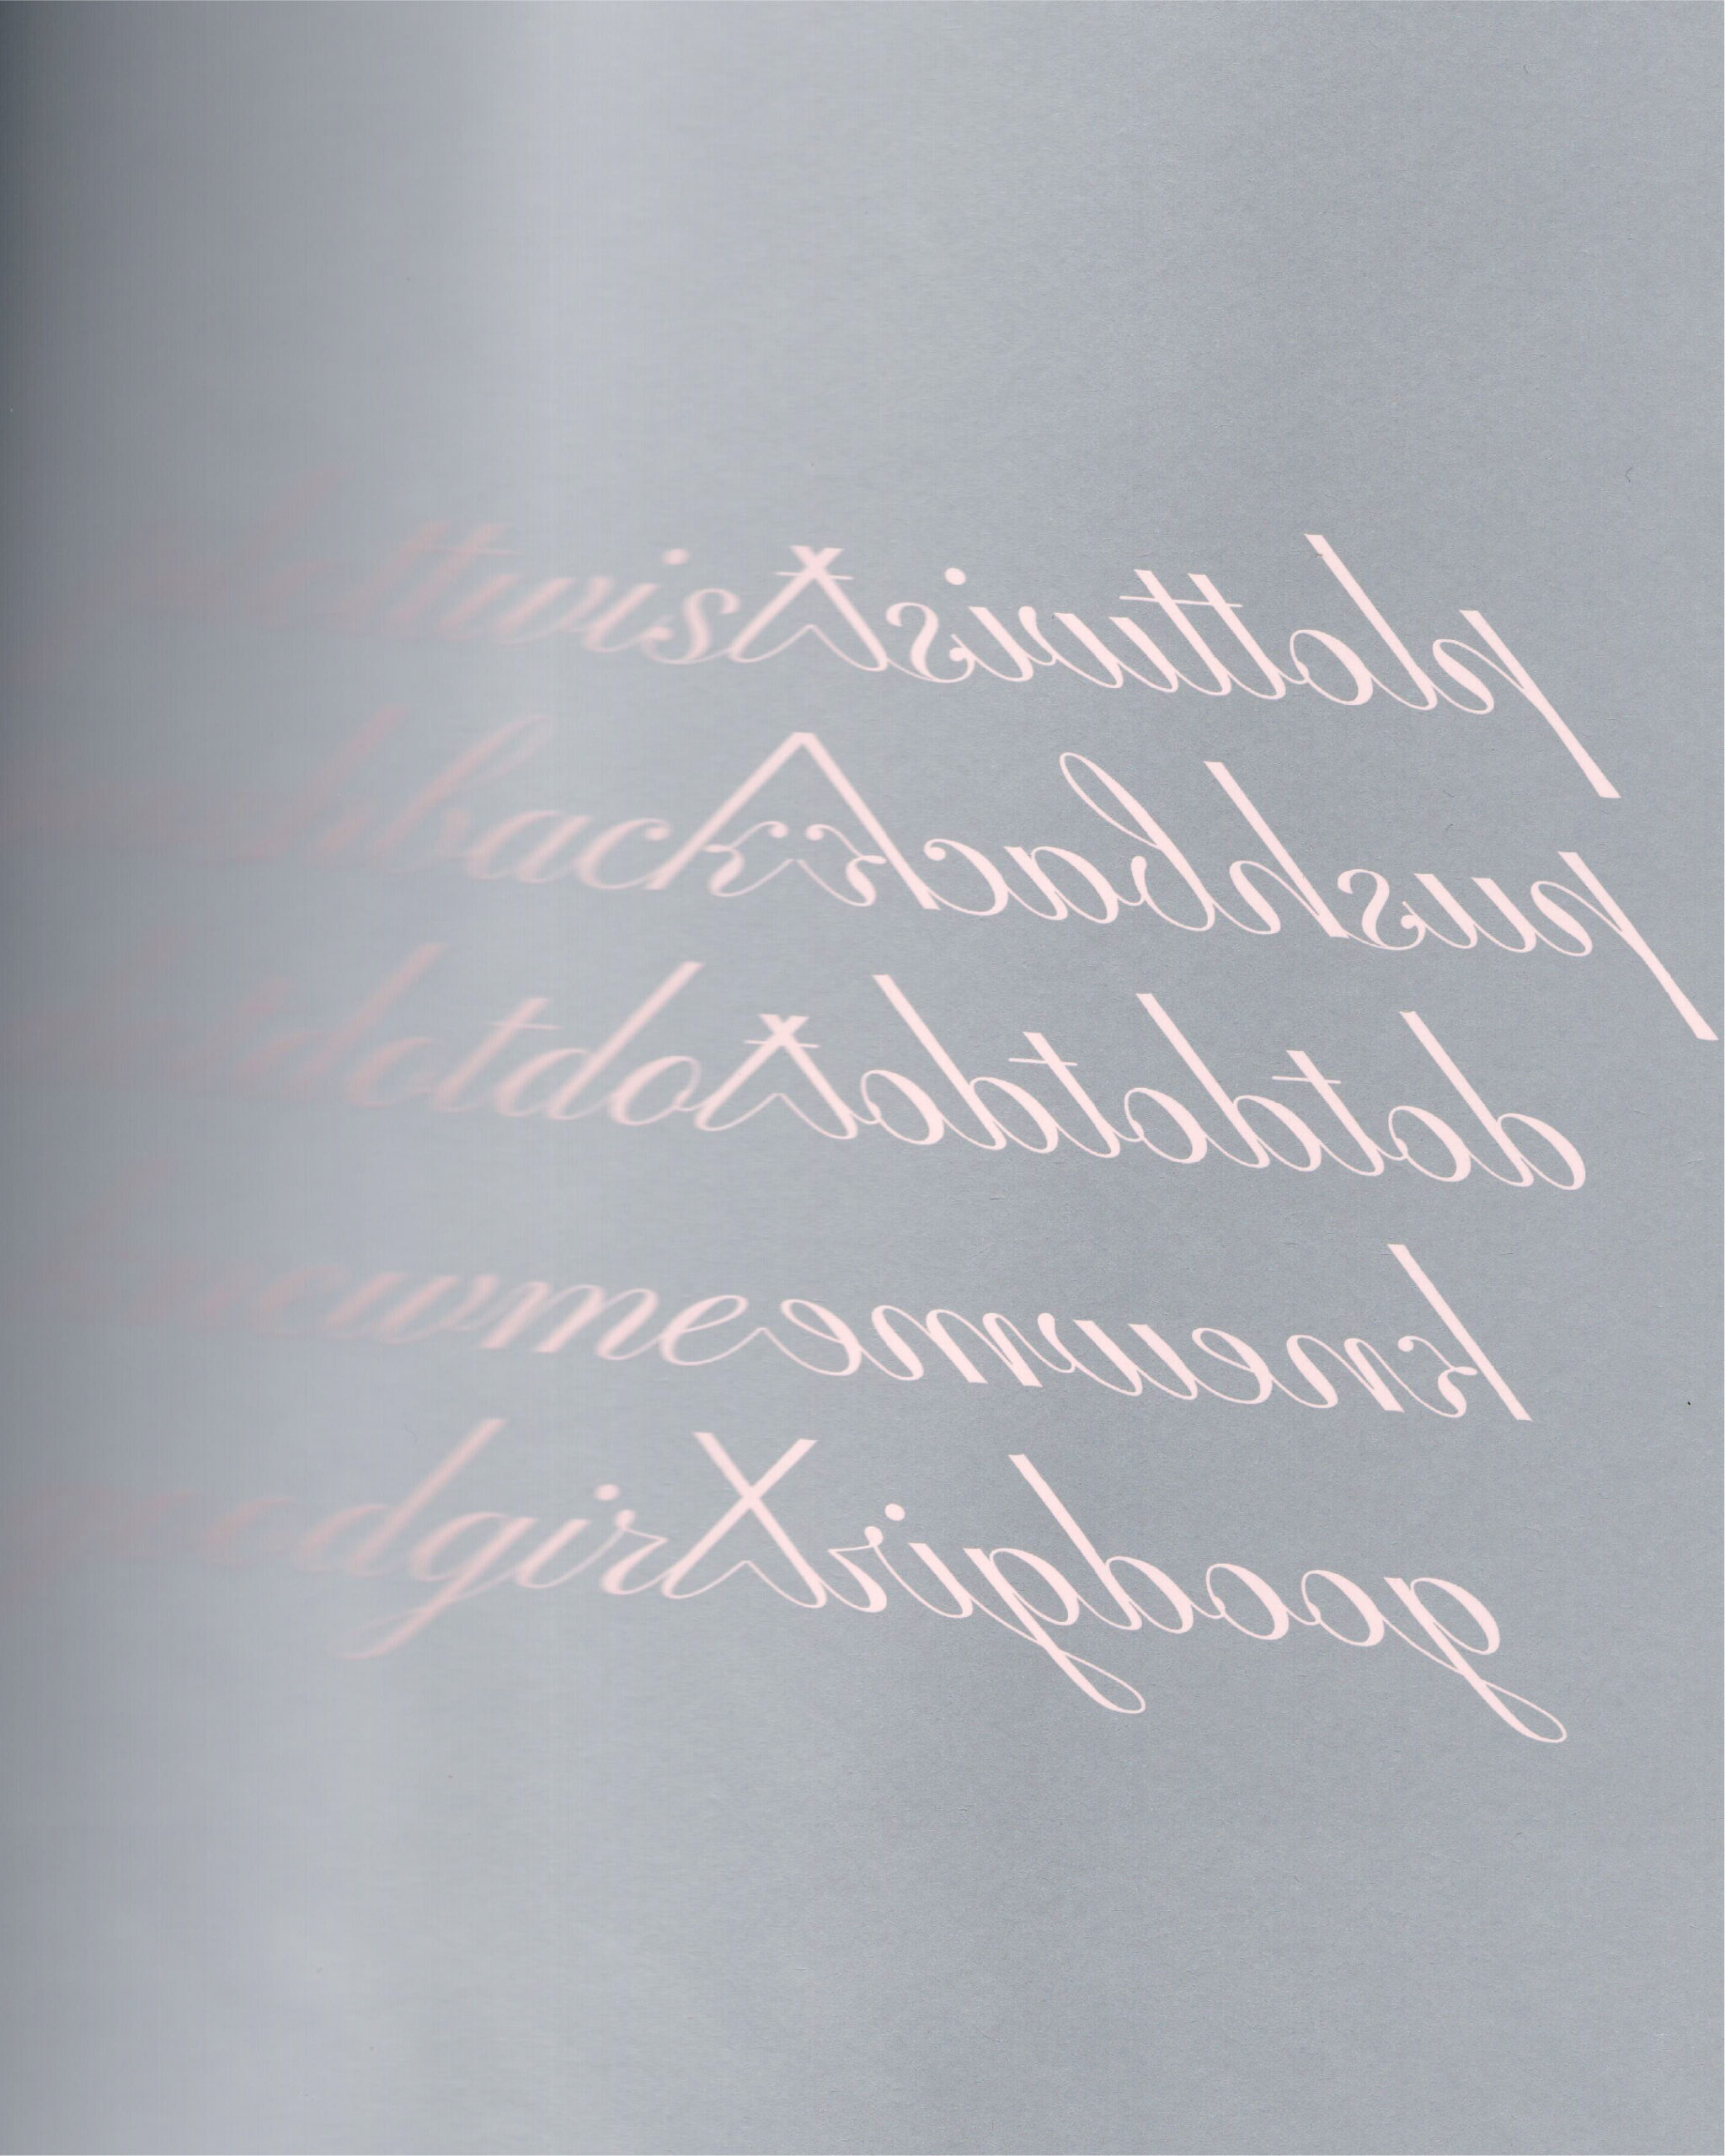 plottwist
pushback
dotdotdot
knewme
goodgirl